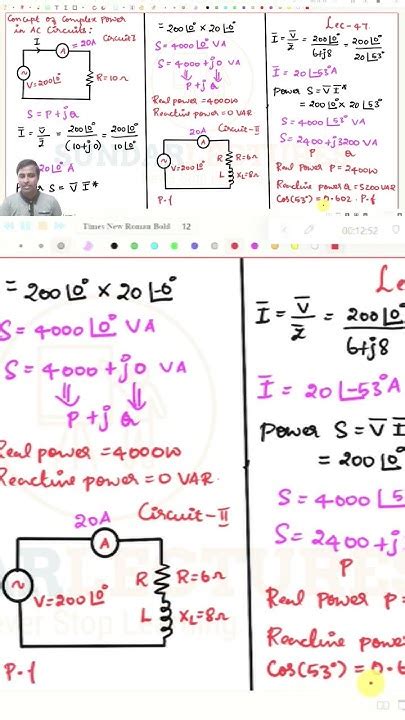 Concept of Complex Power
in AC Circuits:
Circuit I
I
A
= 20A
V=200∠0°
R=10Ω
S = P + jQ
I̅ = V̅/Z̅ = 200∠0°/(10+j0) = 200∠0°/10∠0°
20∠0° A
S = V̅ I̅*
= 200∠0° × 20∠-0°
S = 4000∠0° VA
S = 4000 + j0 VA
⇓ ⇓
P + jQ
Real power = 4000W
Reactive power = 0 VAR
20A
Circuit-II
A
V=200∠0°
R
R=6Ω
L
XL=8Ω
P.f
Lec-47.
I̅ = V̅/Z̅ = 200∠0°/6+j8 = 200∠0°/20∠53°
I̅ = 20∠-53° A
Power S = V̅ I̅*
= 200∠0° × 20∠53°
S = 4000∠53° VA
S = 2400 + j3200 VA
P Q
Real Power P = 2400W
Reactive power Q = 3200 VAR
Cos(53°) = 0.602 P.f
Times New Roman Bold 12
00:12:52
= 200∠0° × 20∠-0°
S = 4000∠0° VA
S = 4000 + j0 VA
⇓ ⇓
P + jQ
Real power = 4000W
Reactive power = 0 VAR.
20A
Circuit-II
A
V=200∠0°
R
R=6Ω
L
XL=8Ω
P.f
Le
I̅ = V̅/Z̅ = 200∠0°/6+j8
I̅ = 20∠-53° A
Power S = V̅ I̅
= 200∠0°
S = 4000∠5
S = 2400 + j
P
Real Power P =
Reactive powe
Cos(53°) = 0.6